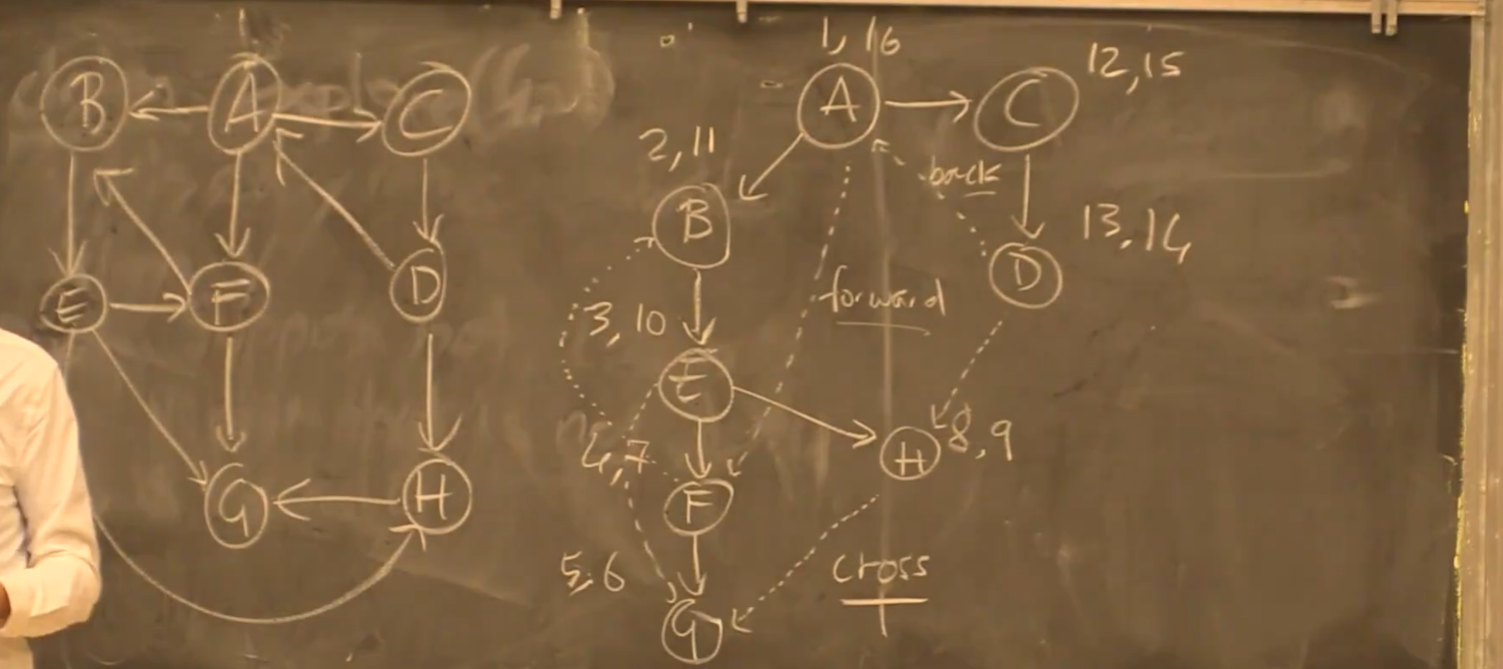 B A C
E F D
G H
1, 16
A C 12, 15
2, 11
B
back
D 13, 14
forward
3, 10
E
4, 7
H 8, 9
F
5, 6
cross
G